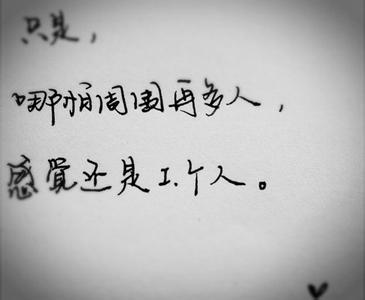 只是，
哪怕周围再多人，
感觉还是工个人。